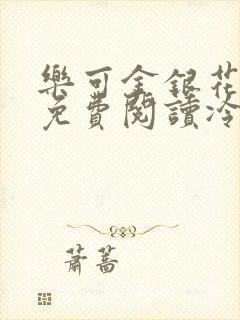 樂可金銀花
免費閱讀冷
蕭蒿